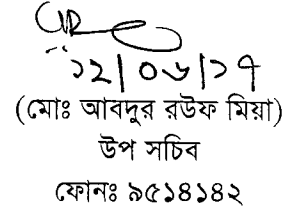 ১২/০৬/১৭
(মোঃ আবদুর রউফ মিয়া)
উপ সচিব
ফোনঃ ৯৫১৪১৪২